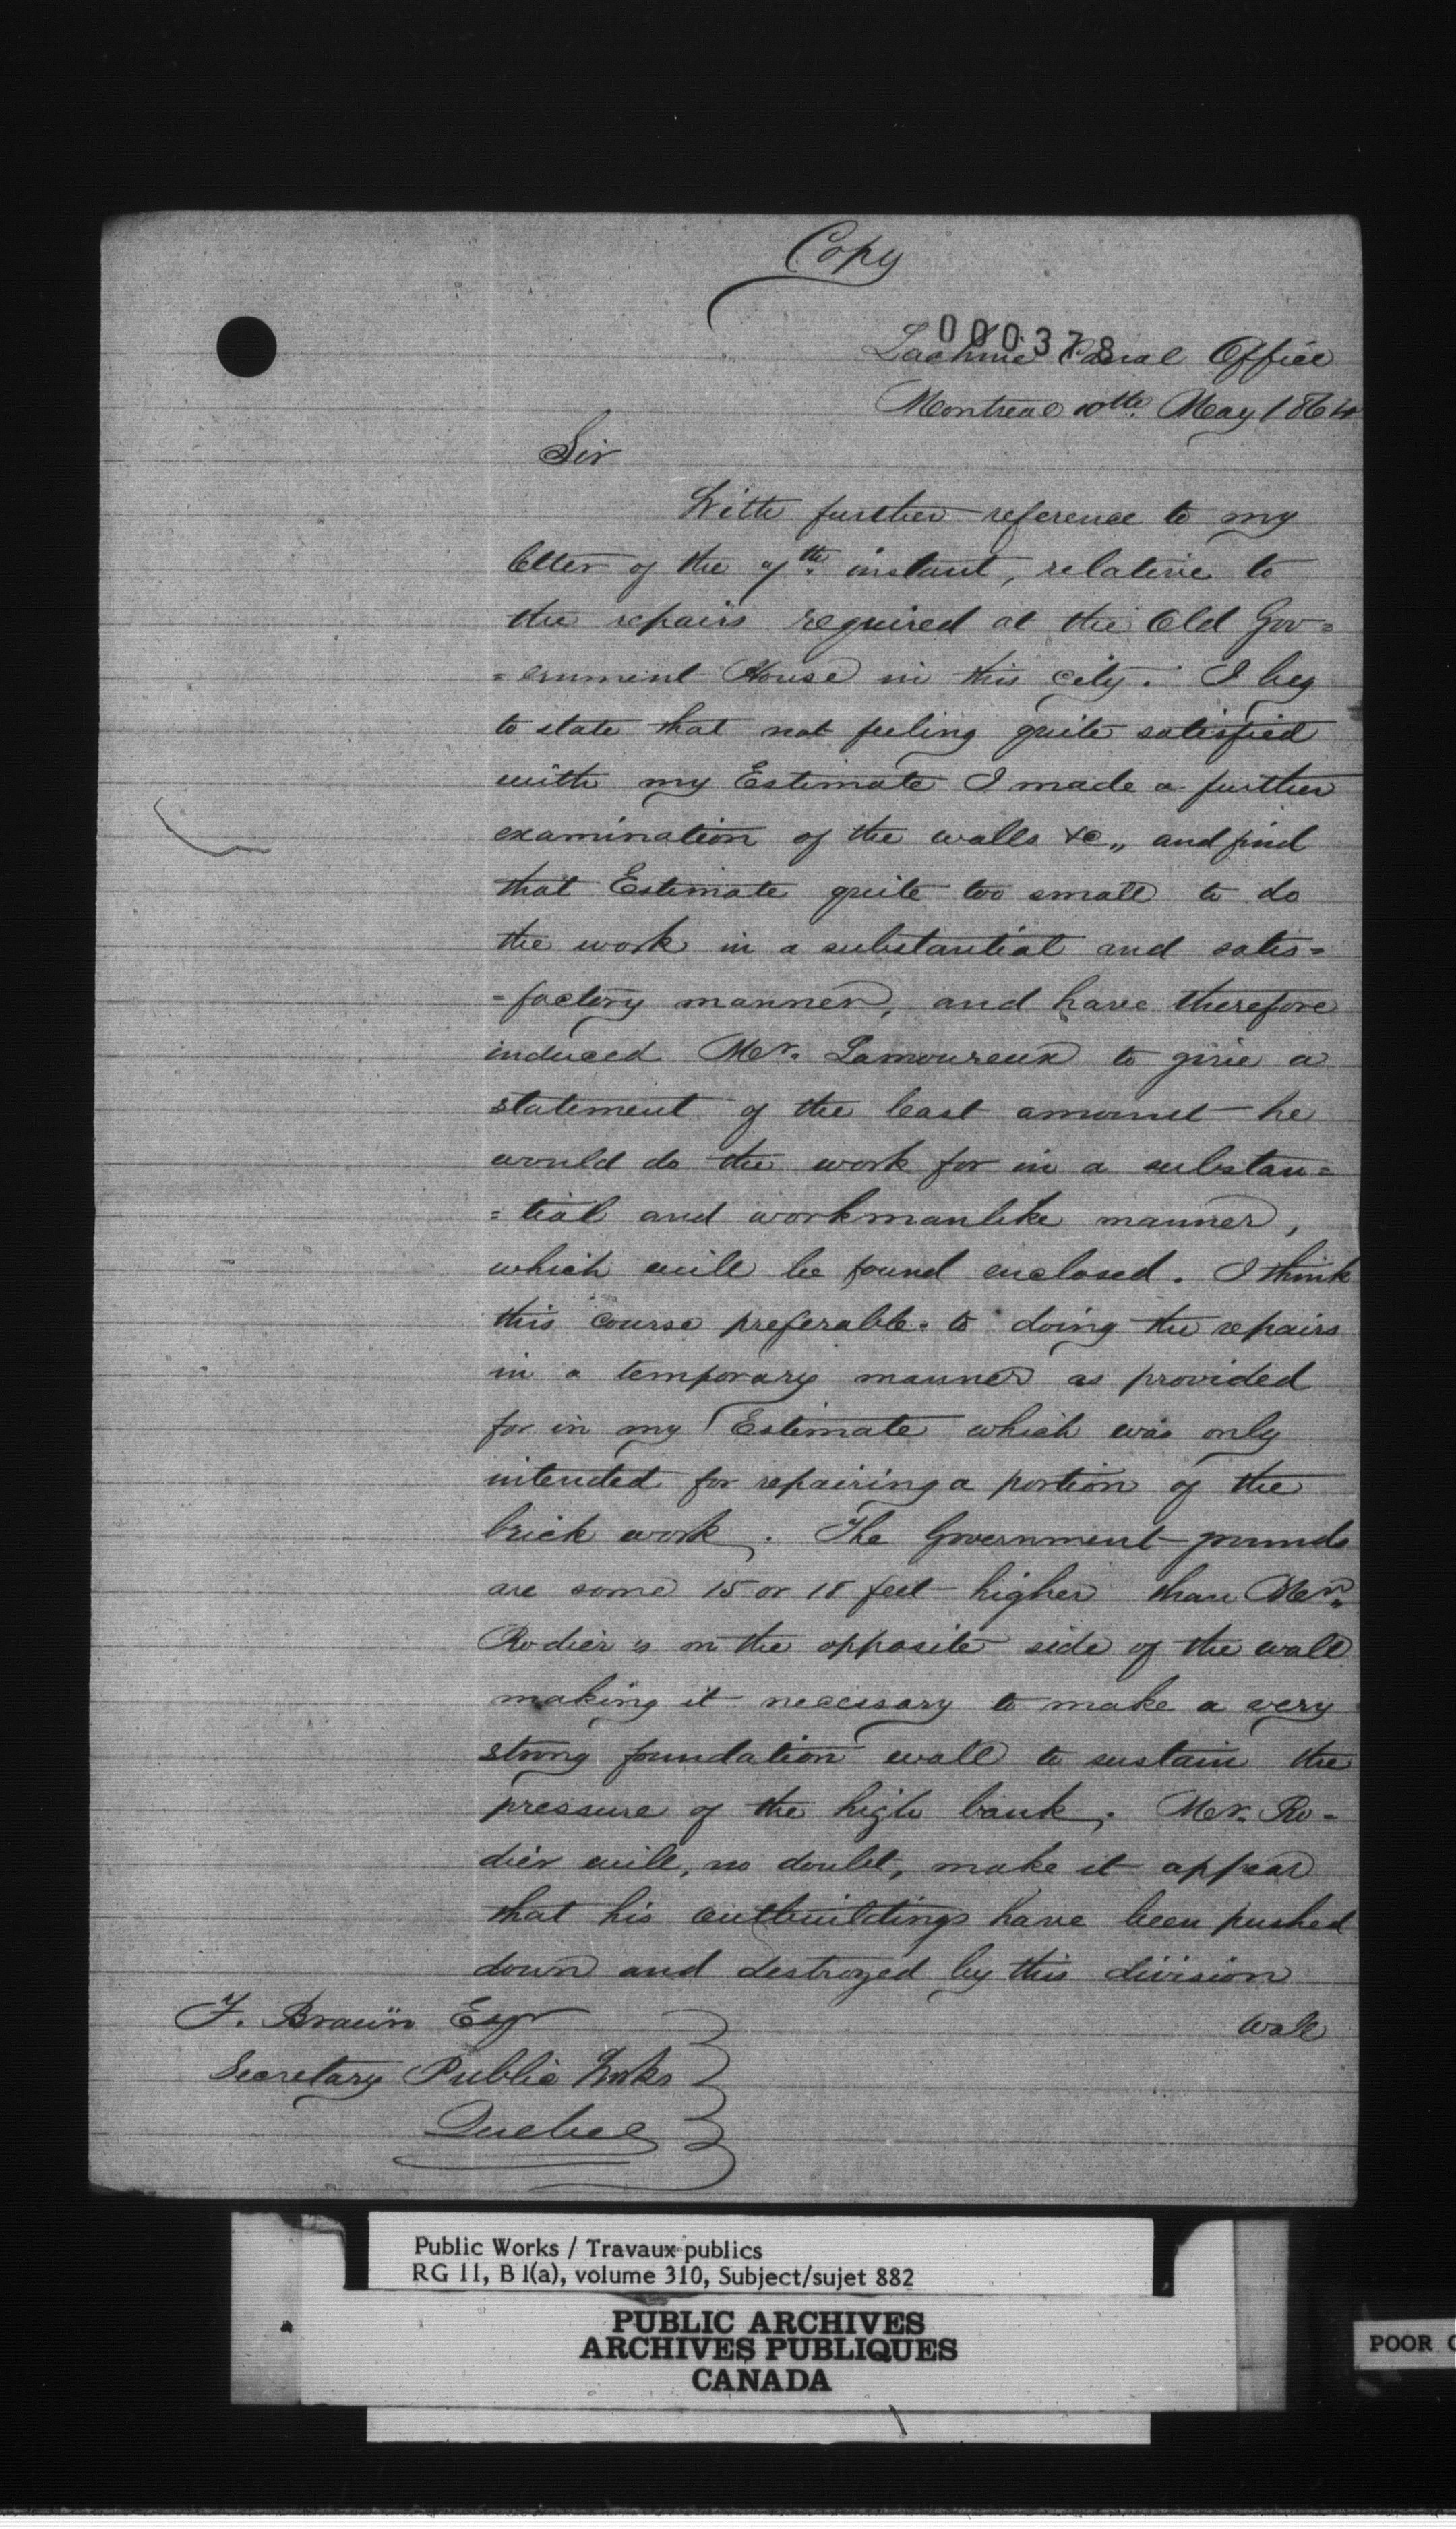 Copy
000378
Lachine Canal Office
Montreal 10th May 1864
Sir
With further reference to my
letter of the 7th instant, relative to
the repairs required at the Old Gov=
=ernment House in this city. I beg
to state that not feeling quite satisfied
with my Estimate I made a further
examination of the walls &c,, and find
that Estimate quite too small to do
the work in a substantial and satis=
=factory manner, and have therefore
induced Mr. Lamoureux to give a
statement of the least amount he
would do the work for in a substan=
=tial and workmanlike manner,
which will be found enclosed. I think
this course preferable to doing the repairs
in a temporary manner as provided
for in my Estimate which was only
intended for repairing a portion of the
brick work. The Government grounds
are some 15 or 18 feet higher than Mr.
Rodier's on the opposite side of the wall
making it necessary to make a very
strong foundation wall to sustain the
pressure of the high bank, Mr. Ro=
dier will, no doubt, make it appear
that his outbuildings have been pushed
down and destroyed by this division
wall
F. Braün Esqr
Secretary Public Works
Quebec
Public Works / Travaux publics
RG 11, B 1(a), volume 310, Subject/sujet 882
PUBLIC ARCHIVES
ARCHIVES PUBLIQUES
CANADA
POOR